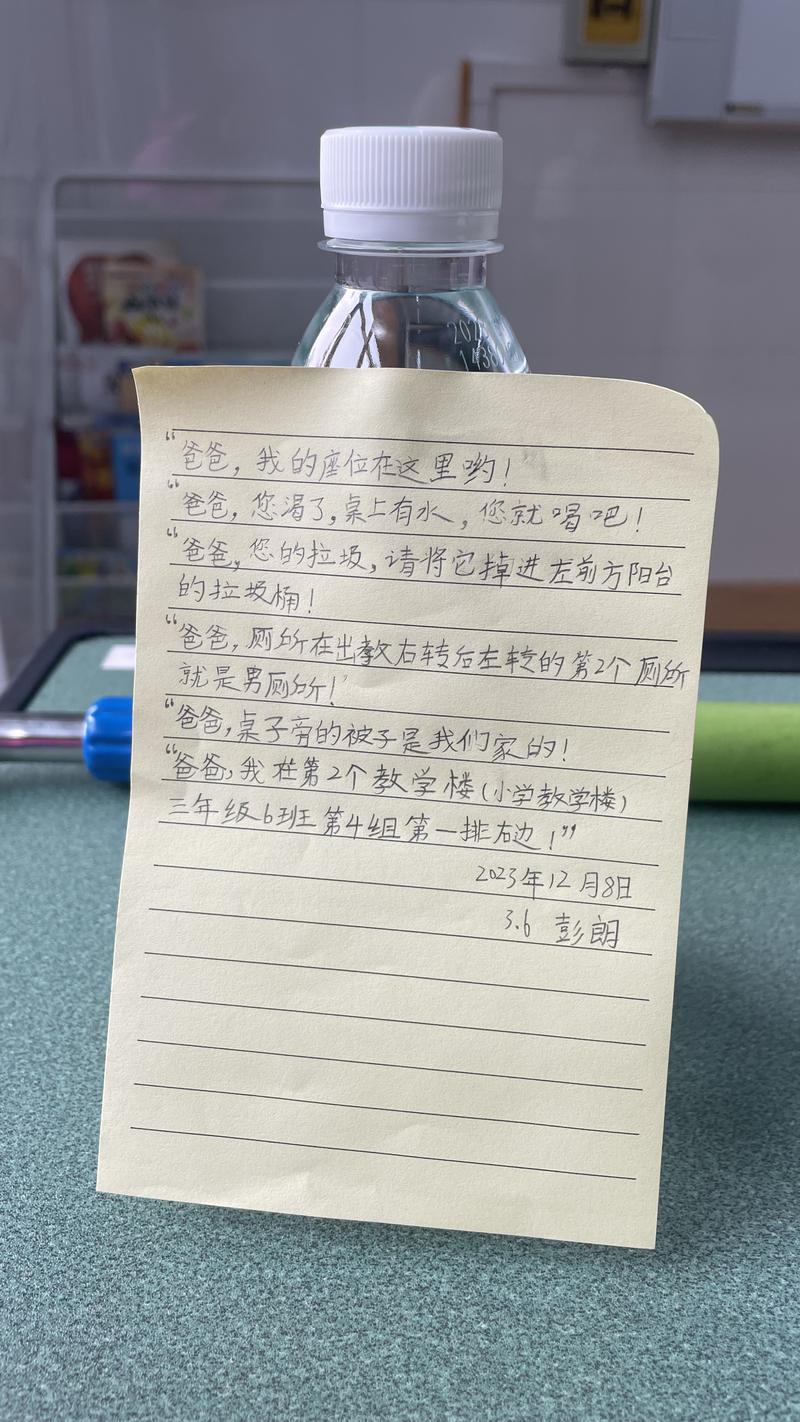 202
1438
“爸爸，我的座位在这里哟！
“爸爸，您渴了，桌上有水，您就喝吧！
“爸爸，您的垃圾，请将它掉进左前方阳台
的垃圾桶！
“爸爸，厕所在出教右转后左转的第2个厕所
就是男厕所！
“爸爸，桌子旁的被子是我们家的！
“爸爸，我在第2个教学楼（小学教学楼）
三年级6班第4组第一排右边！”
2023年12月8日
3.6 彭朗